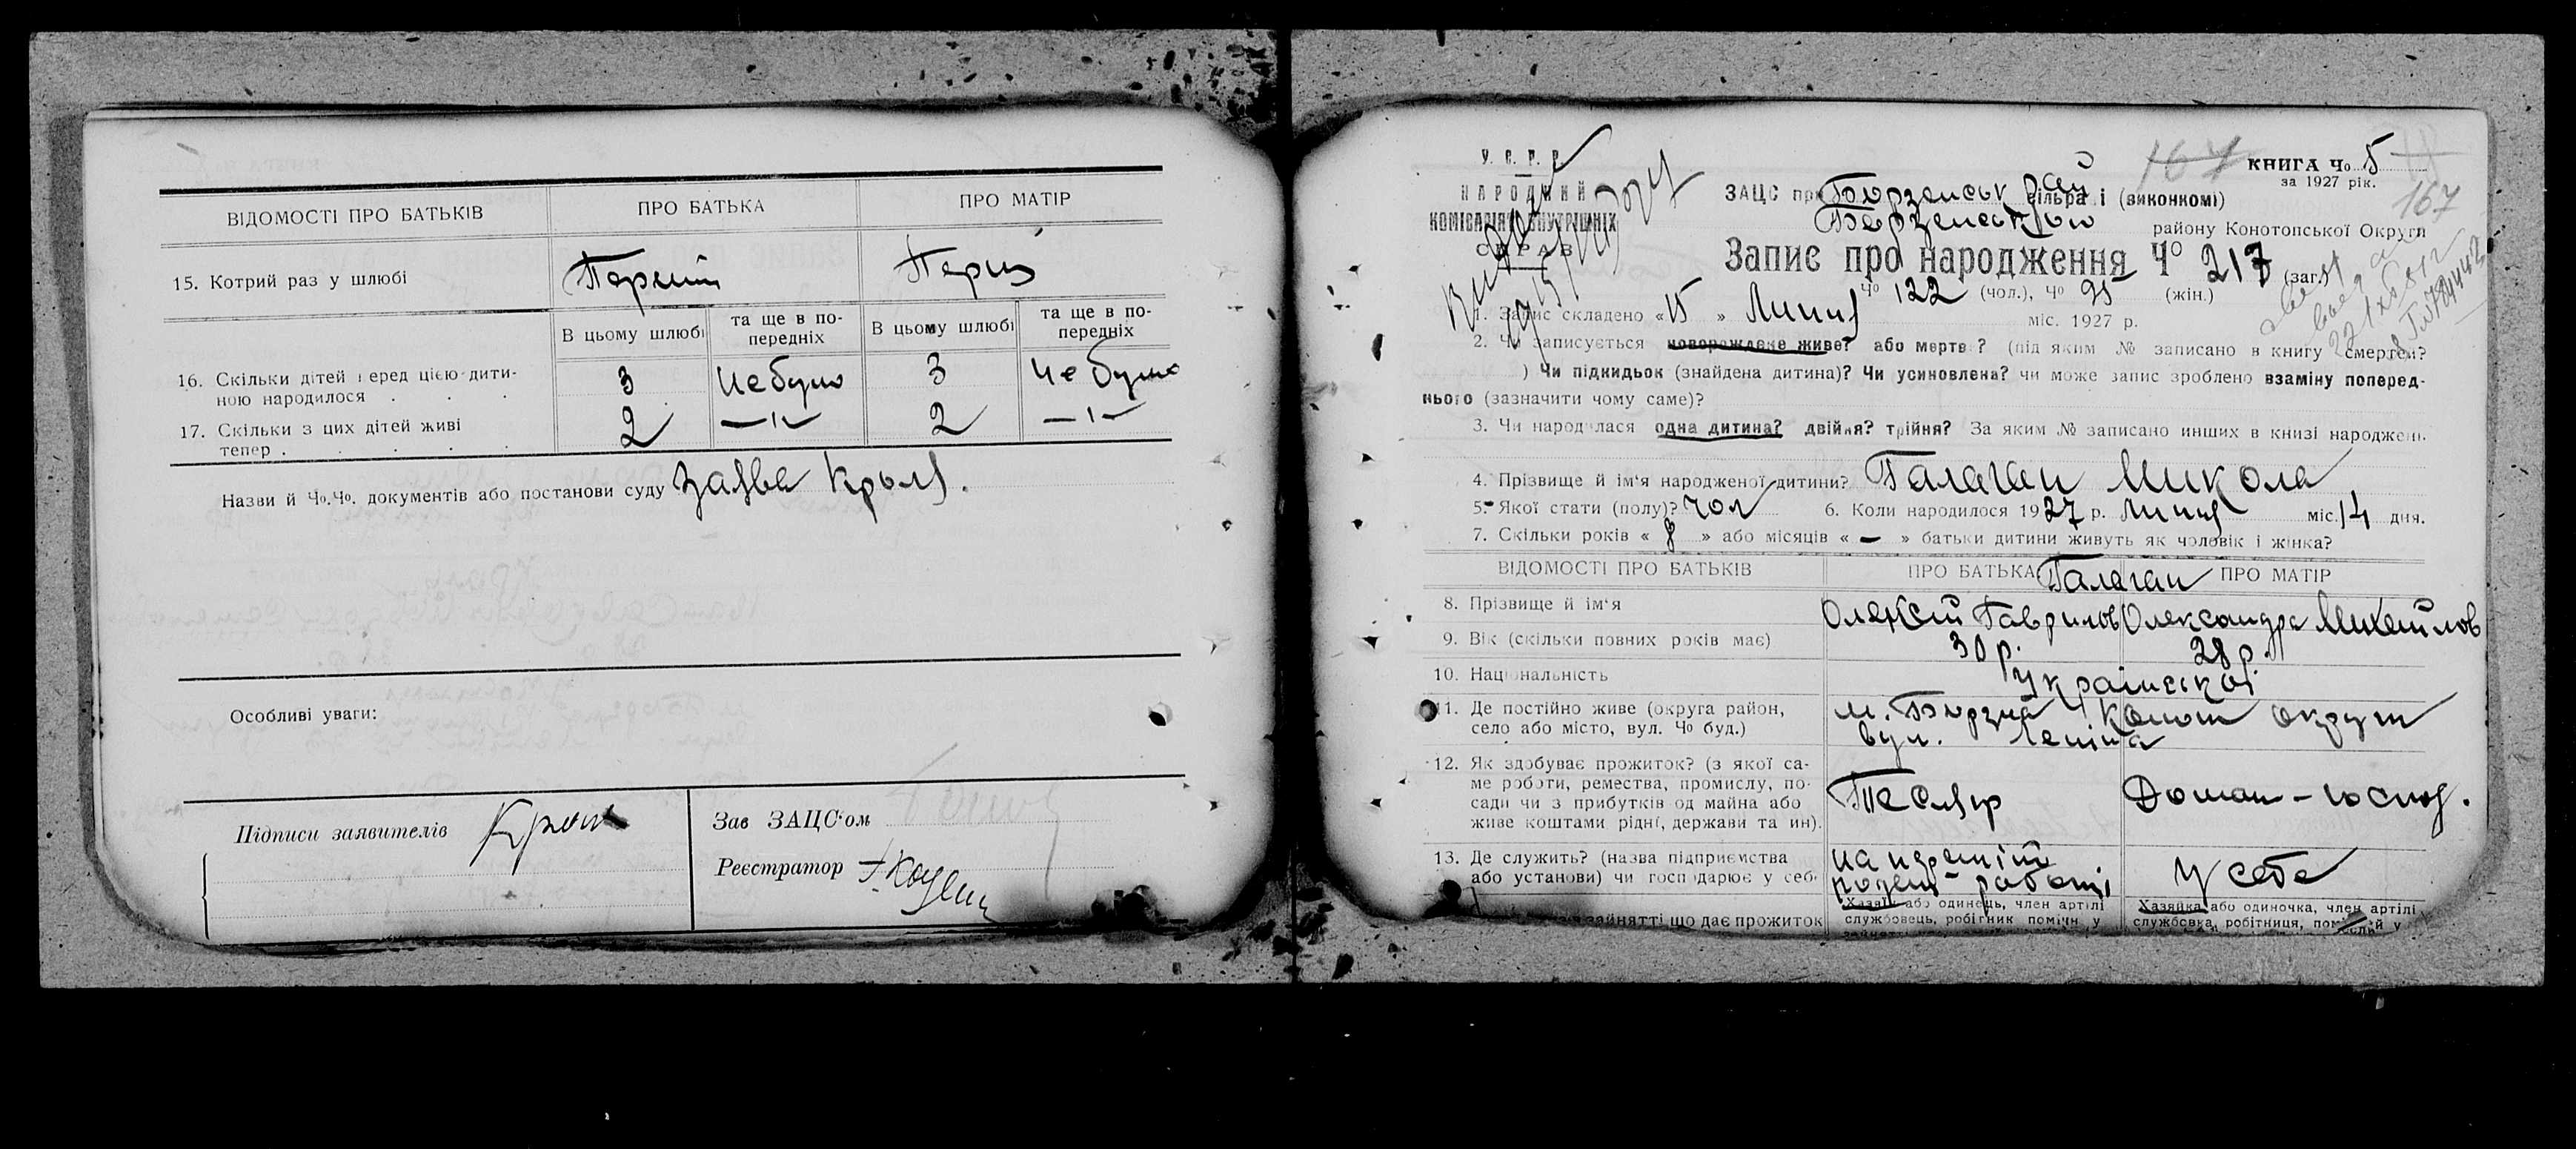 ВІДОМОСТІ ПРО БАТЬКІВ
ПРО БАТЬКА
ПРО МАТІР
15. Котрий раз у шлюбі
Перший
Перш
В цьому шлюбі
та ще в по-
передніх
В цьому шлюбі
та ще в по-
передніх
16. Скільки дітей перед цією дити-
ною народилося . . .
3
Не було
3
Не було
17. Скільки з цих дітей живі
тепер . . . . .
2
—"—
2
—"—
Назви й Чо.Чо. документів або постанови суду заява Крыля.
Особливі уваги:
Підписи заявителів
Зав ЗАЦС'ом
Реєстратор
У. С. Р. Р.
НАРОДНИЙ
КОМІСАРІЯТ ВНУТРІШНІХ
СПРАВ
167
КНИГА Чо 5
за 1927 рік.
167
ЗАЦС при Борзенськ рай сільраді (виконкомі)
Борзенського району Конотопської Округи
Запис про народження Чо 217 (заг.)
Чо 122 (чол.), Чо 95 (жін.)
1. Запис складено «15» Липня міс. 1927 р.
2. Чи записується новорождене живе? або мертве? (під яким № записано в книгу смертей?
) Чи підкидьок (знайдена дитина)? Чи усиновлена? чи може запис зроблено взаміну поперед-
нього (зазначити чому саме)?
3. Чи народилася одна дитина? двійня? трійня? За яким № записано инших в книзі народжень
4. Прізвище й ім'я народженої дитини? Галаган Микола
5. Якої стати (полу)? чол
6. Коли народилося 1927 р. Липня міс. 14 дня.
7. Скільки років « 8 » або місяців « — » батьки дитини живуть як чоловік і жінка?
ВІДОМОСТІ ПРО БАТЬКІВ
ПРО БАТЬКА
Галаган
ПРО МАТІР
8. Прізвище й ім'я
Олексій Гаврилов
Олександра Михайлов
9. Вік (скільки повних років має)
30 р.
28 р.
10. Національність
Української
11. Де постійно живе (округа район,
село або місто, вул. Чо буд.)
м. Борзна Коноп округи
вул. Леніна
12. Як здобуває прожиток? (з якої са-
ме роботи, ремества, промислу, по-
сади чи з прибутків од майна або
живе коштами рідні, держави та ин).
Тесляр
Домаш-господ.
13. Де служить? (назва підприємства
або установи) чи господарює у себе
роботі
у себе
зайнятті що дає прожиток
Хазяїн або одинець, член артілі
службовець, робітник помічн у
Хазяйка або одиночка, член артілі
службовка, робітниця, помічн й у